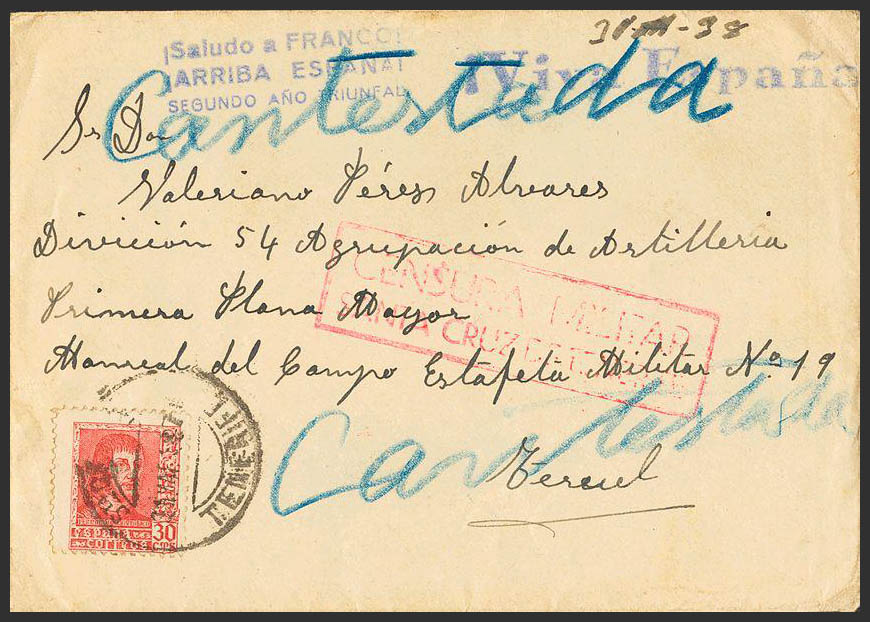 31-III-38
¡Saludo a FRANCO!
¡ARRIBA ESPAÑA!
SEGUNDO AÑO TRIUNFAL
¡Viva España
Contestada
Sr Don
Valeriano Pérez Alvares
Divición 54 Agrupación de Artilleria
CENSURA MILITAR
SANTA CRUZ DE
Primera Plana Mayor
Monreal del Campo Estafeta Militar Nº 19
Contestada
Teruel
TENERIFE
ESPAÑA 30
CORREOS CTS